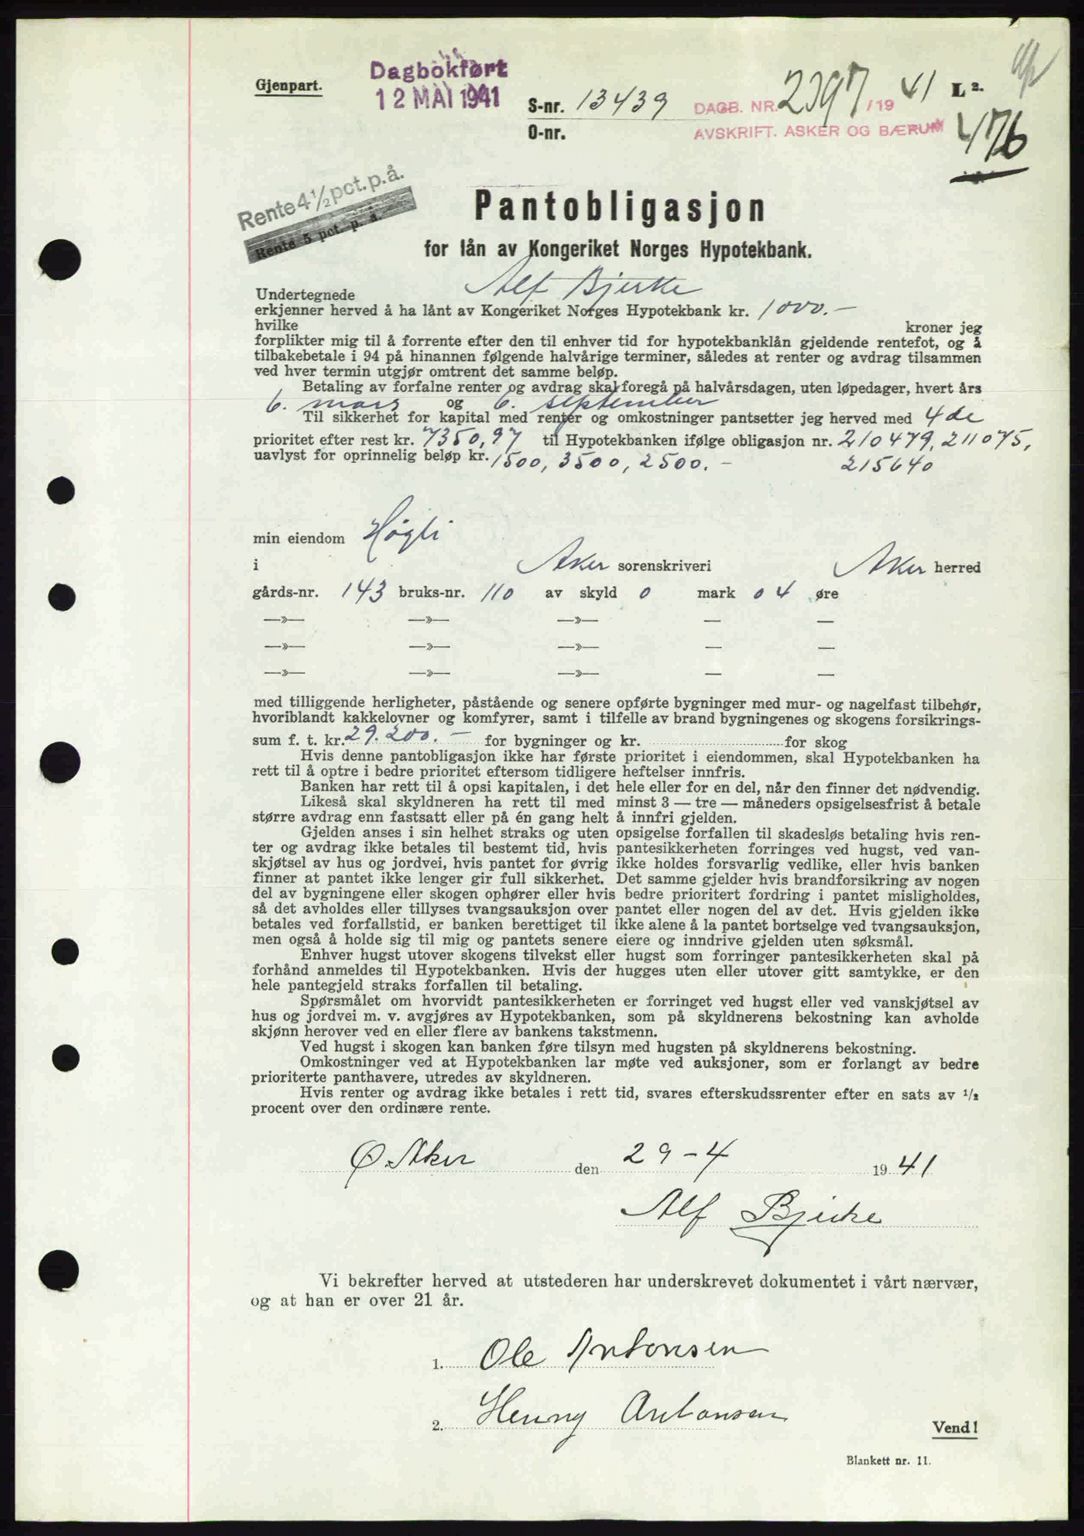 Gjenpart.
Dagbokført
12 MAI 1941
S-nr. 13439
O-nr.
DAGB. NR. 2397/19 41
AVSKRIFT. ASKER OG BÆRUM
L 2.
476
Rente 4 1/2 pct. p. å.
Rente 5 pct. p. å.
Pantobligasjon
for lån av Kongeriket Norges Hypotekbank.
Undertegnede Alf Bjerke
erkjenner herved å ha lånt av Kongeriket Norges Hypotekbank kr. 1000.-
hvilke kroner jeg
forplikter mig til å forrente efter den til enhver tid for hypotekbanklån gjeldende rentefot, og å
tilbakebetale i 94 på hinannen følgende halvårige terminer, således at renter og avdrag tilsammen
ved hver termin utgjør omtrent det samme beløp.
Betaling av forfalne renter og avdrag skal foregå på halvårsdagen, uten løpedager, hvert års
6. mars og 6. september
Til sikkerhet for kapital med renter og omkostninger pantsetter jeg herved med 4de
prioritet efter rest kr. 7350,97 til Hypotekbanken ifølge obligasjon nr. 210479, 211075,
uavlyst for oprinnelig beløp kr. 1500, 3500, 2500.- 215640
min eiendom Høgli
i Aker sorenskriveri Aker herred
gårds-nr. 143 bruks-nr. 110 av skyld 0 mark 04 øre
—»— —»— —»— — —
—»— —»— —»— — —
—»— —»— —»— — —
med tilliggende herligheter, påstående og senere opførte bygninger med mur- og nagelfast tilbehør,
hvoriblandt kakkelovner og komfyrer, samt i tilfelle av brand bygningenes og skogens forsikrings-
sum f. t. kr. 29.200.- for bygninger og kr. for skog
Hvis denne pantobligasjon ikke har første prioritet i eiendommen, skal Hypotekbanken ha
rett til å optre i bedre prioritet eftersom tidligere heftelser innfris.
Banken har rett til å opsi kapitalen, i det hele eller for en del, når den finner det nødvendig.
Likeså skal skyldneren ha rett til med minst 3 — tre — måneders opsigelsesfrist å betale
større avdrag enn fastsatt eller på én gang helt å innfri gjelden.
Gjelden anses i sin helhet straks og uten opsigelse forfallen til skadesløs betaling hvis ren-
ter og avdrag ikke betales til bestemt tid, hvis pantesikkerheten forringes ved hugst, ved van-
skjøtsel av hus og jordvei, hvis pantet for øvrig ikke holdes forsvarlig vedlike, eller hvis banken
finner at pantet ikke lenger gir full sikkerhet. Det samme gjelder hvis brandforsikring av nogen
del av bygningene eller skogen ophører eller hvis bedre prioritert fordring i pantet misligholdes,
så det avholdes eller tillyses tvangsauksjon over pantet eller nogen del av det. Hvis gjelden ikke
betales ved forfallstid, er banken berettiget til ikke alene å la pantet bortselge ved tvangsauksjon,
men også å holde sig til mig og pantets senere eiere og inndrive gjelden uten søksmål.
Enhver hugst utover skogens tilvekst eller hugst som forringer pantesikkerheten skal på
forhånd anmeldes til Hypotekbanken. Hvis der hugges uten eller utover gitt samtykke, er den
hele pantegjeld straks forfallen til betaling.
Spørsmålet om hvorvidt pantesikkerheten er forringet ved hugst eller ved vanskjøtsel av
hus og jordvei m. v. avgjøres av Hypotekbanken, som på skyldnerens bekostning kan avholde
skjønn herover ved en eller flere av bankens takstmenn.
Ved hugst i skogen kan banken føre tilsyn med hugsten på skyldnerens bekostning.
Omkostninger ved at Hypotekbanken lar møte ved auksjoner, som er forlangt av bedre
prioriterte panthavere, utredes av skyldneren.
Hvis renter og avdrag ikke betales i rett tid, svares efterskudssrenter efter en sats av 1/2
procent over den ordinære rente.
Ø. Aker den 29-4 1941
Alf Bjerke
Vi bekrefter herved at utstederen har underskrevet dokumentet i vårt nærvær,
og at han er over 21 år.
1. Ole Antonsen
2. Henny Antonsen
Vend!
Blankett nr. 11.